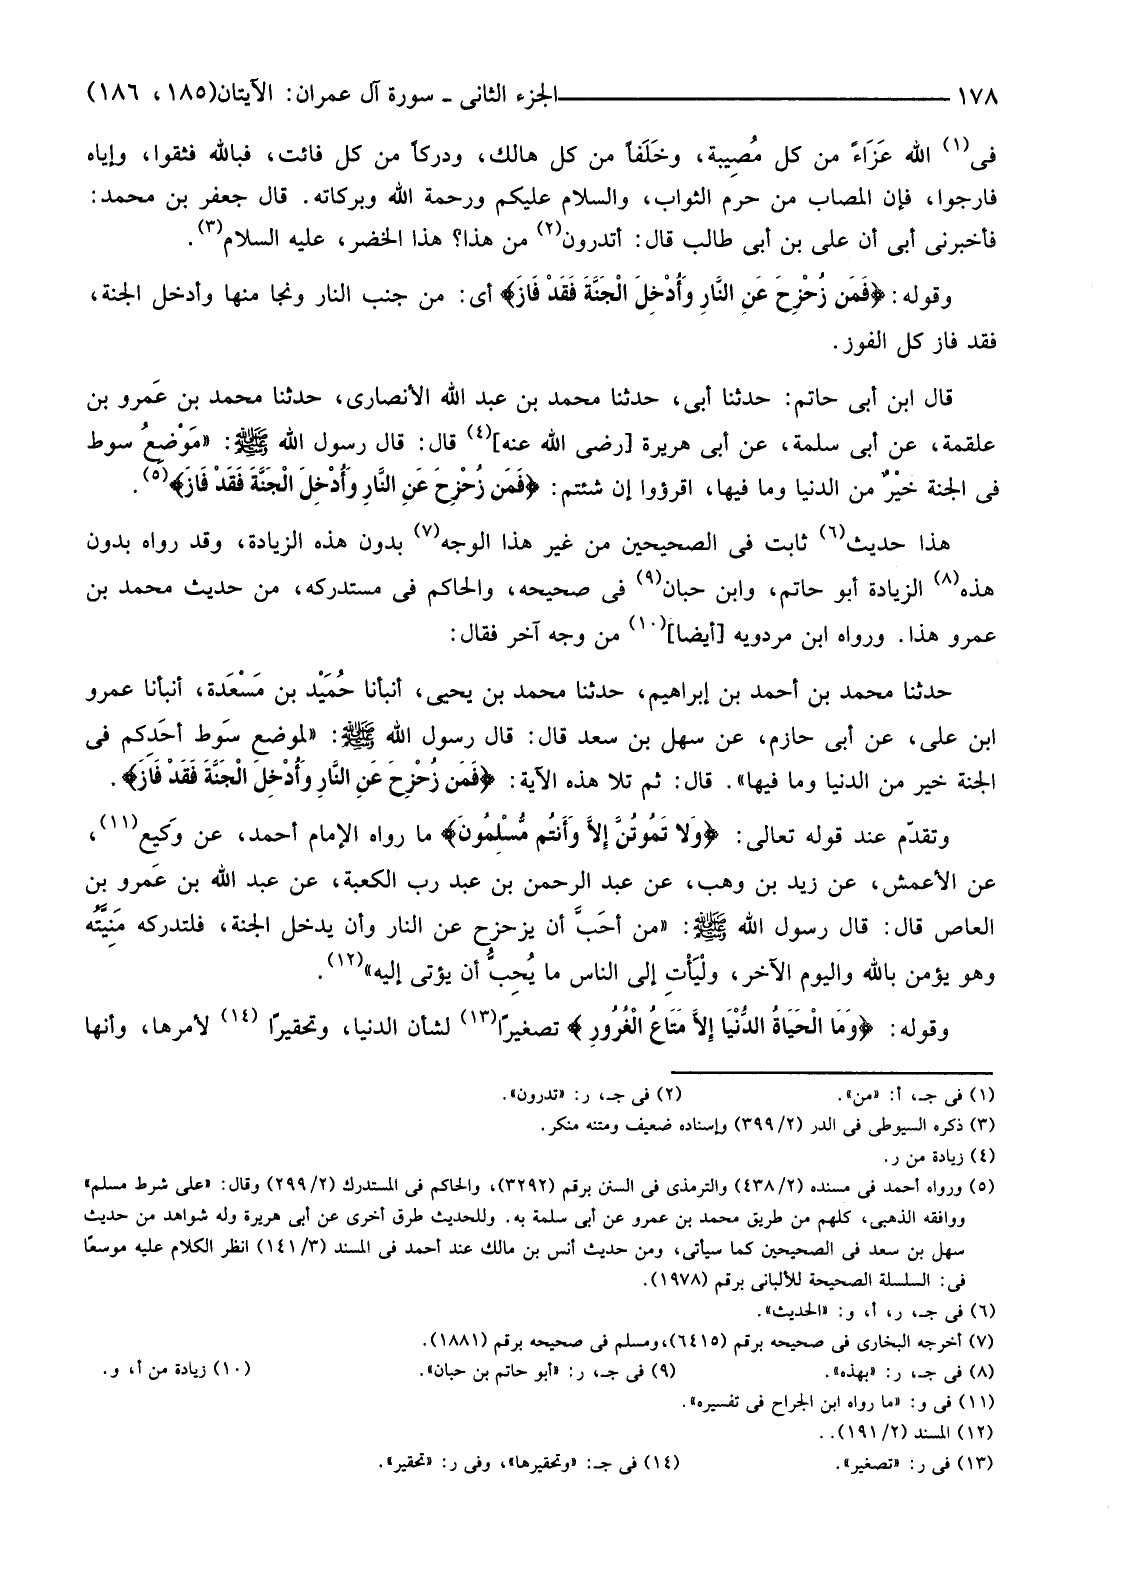 ١٧٨ ـــــــــــــ الجزء الثانى ـ سورة آل عمران: الآيتان(١٨٥، ١٨٦)
فى(١) الله عَزَاءً من كل مُصِيبة، وخَلَفاً من كل هالك، ودركاً من كل فائت، فبالله فثقوا، وإياه
فارجوا، فإن المصاب من حرم الثواب، والسلام عليكم ورحمة الله وبركاته. قال جعفر بن محمد:
فأخبرنى أبى أن على بن أبى طالب قال: أتدرون(٢) من هذا؟ هذا الخضر، عليه السلام(٣).
وقوله: ﴿فَمَن زُحْزِحَ عَنِ النَّارِ وَأُدْخِلَ الْجَنَّةَ فَقَدْ فَازَ﴾ أى: من جنب النار ونجا منها وأدخل الجنة،
فقد فاز كل الفوز.
قال ابن أبى حاتم: حدثنا أبى، حدثنا محمد بن عبد الله الأنصارى، حدثنا محمد بن عَمرو بن
علقمة، عن أبى سلمة، عن أبى هريرة [رضى الله عنه](٤) قال: قال رسول الله ﷺ: «مَوْضعُ سوط
فى الجنة خيْرٌ من الدنيا وما فيها، اقرؤوا إن شئتم: ﴿فَمَن زُحْزِحَ عَنِ النَّارِ وَأُدْخِلَ الْجَنَّةَ فَقَدْ فَازَ﴾»(٥).
هذا حديث(٦) ثابت فى الصحيحين من غير هذا الوجه(٧) بدون هذه الزيادة، وقد رواه بدون
هذه(٨) الزيادة أبو حاتم، وابن حبان(٩) فى صحيحه، والحاكم فى مستدركه، من حديث محمد بن
عمرو هذا. ورواه ابن مردويه [أيضا](١٠) من وجه آخر فقال:
حدثنا محمد بن أحمد بن إبراهيم، حدثنا محمد بن يحيى، أنبأنا حُمَيْد بن مَسْعَدة، أنبأنا عمرو
ابن على، عن أبى حازم، عن سهل بن سعد قال: قال رسول الله ﷺ: «لموضع سَوط أحَدِكم فى
الجنة خير من الدنيا وما فيها». قال: ثم تلا هذه الآية: ﴿فَمَن زُحْزِحَ عَنِ النَّارِ وَأُدْخِلَ الْجَنَّةَ فَقَدْ فَازَ﴾.
وتقدّم عند قوله تعالى: ﴿وَلا تَمُوتُنَّ إِلاَّ وَأَنتُم مُّسْلِمُونَ﴾ ما رواه الإمام أحمد، عن وَكَيع(١١)،
عن الأعمش، عن زيد بن وهب، عن عبد الرحمن بن عبد رب الكعبة، عن عبد الله بن عَمرو بن
العاص قال: قال رسول الله ﷺ: «من أحَبَّ أن يزحزح عن النار وأن يدخل الجنة، فلتدركه مَنِيَّتُه
وهو يؤمن بالله واليوم الآخر، ولْيَأْتِ إلى الناس ما يُحِبُّ أن يؤتى إليه»(١٢).
وقوله: ﴿وَمَا الْحَيَاةُ الدُّنْيَا إِلاَّ مَتَاعُ الْغُرُورِ﴾ تصغيرًا(١٣) لشأن الدنيا، وتحقيرًا (١٤) لأمرها، وأنها
(١) فى جـ، أ: «من». (٢) فى جـ، ر: «تدرون».
(٣) ذكره السيوطى فى الدر (٣٩٩/٢) وإسناده ضعيف ومتنه منكر.
(٤) زيادة من ر.
(٥) ورواه أحمد فى مسنده (٤٣٨/٢) والترمذى فى السنن برقم (٣٢٩٢)، والحاكم فى المستدرك (٢٩٩/٢) وقال: «على شرط مسلم»
ووافقه الذهبى، كلهم من طريق محمد بن عمرو عن أبى سلمة به. وللحديث طرق أخرى عن أبى هريرة وله شواهد من حديث
سهل بن سعد فى الصحيحين كما سيأتى، ومن حديث أنس بن مالك عند أحمد فى المسند (١٤١/٣) انظر الكلام عليه موسعًا
فى: السلسلة الصحيحة للألبانى برقم (١٩٧٨).
(٦) فى جـ، ر، أ، و: «الحديث».
(٧) أخرجه البخارى فى صحيحه برقم (٦٤١٥)،ومسلم فى صحيحه برقم (١٨٨١).
(٨) فى جـ، ر: «بهذه». (٩) فى جـ، ر: «أبو حاتم بن حبان». (١٠) زيادة من أ، و.
(١١) فى و: «ما رواه ابن الجراح فى تفسيره».
(١٢) المسند (١٩١/٢). .
(١٣) فى ر: «تصغير». (١٤) فى جـ: «وتحقيرها»، وفى ر: «تحقير».